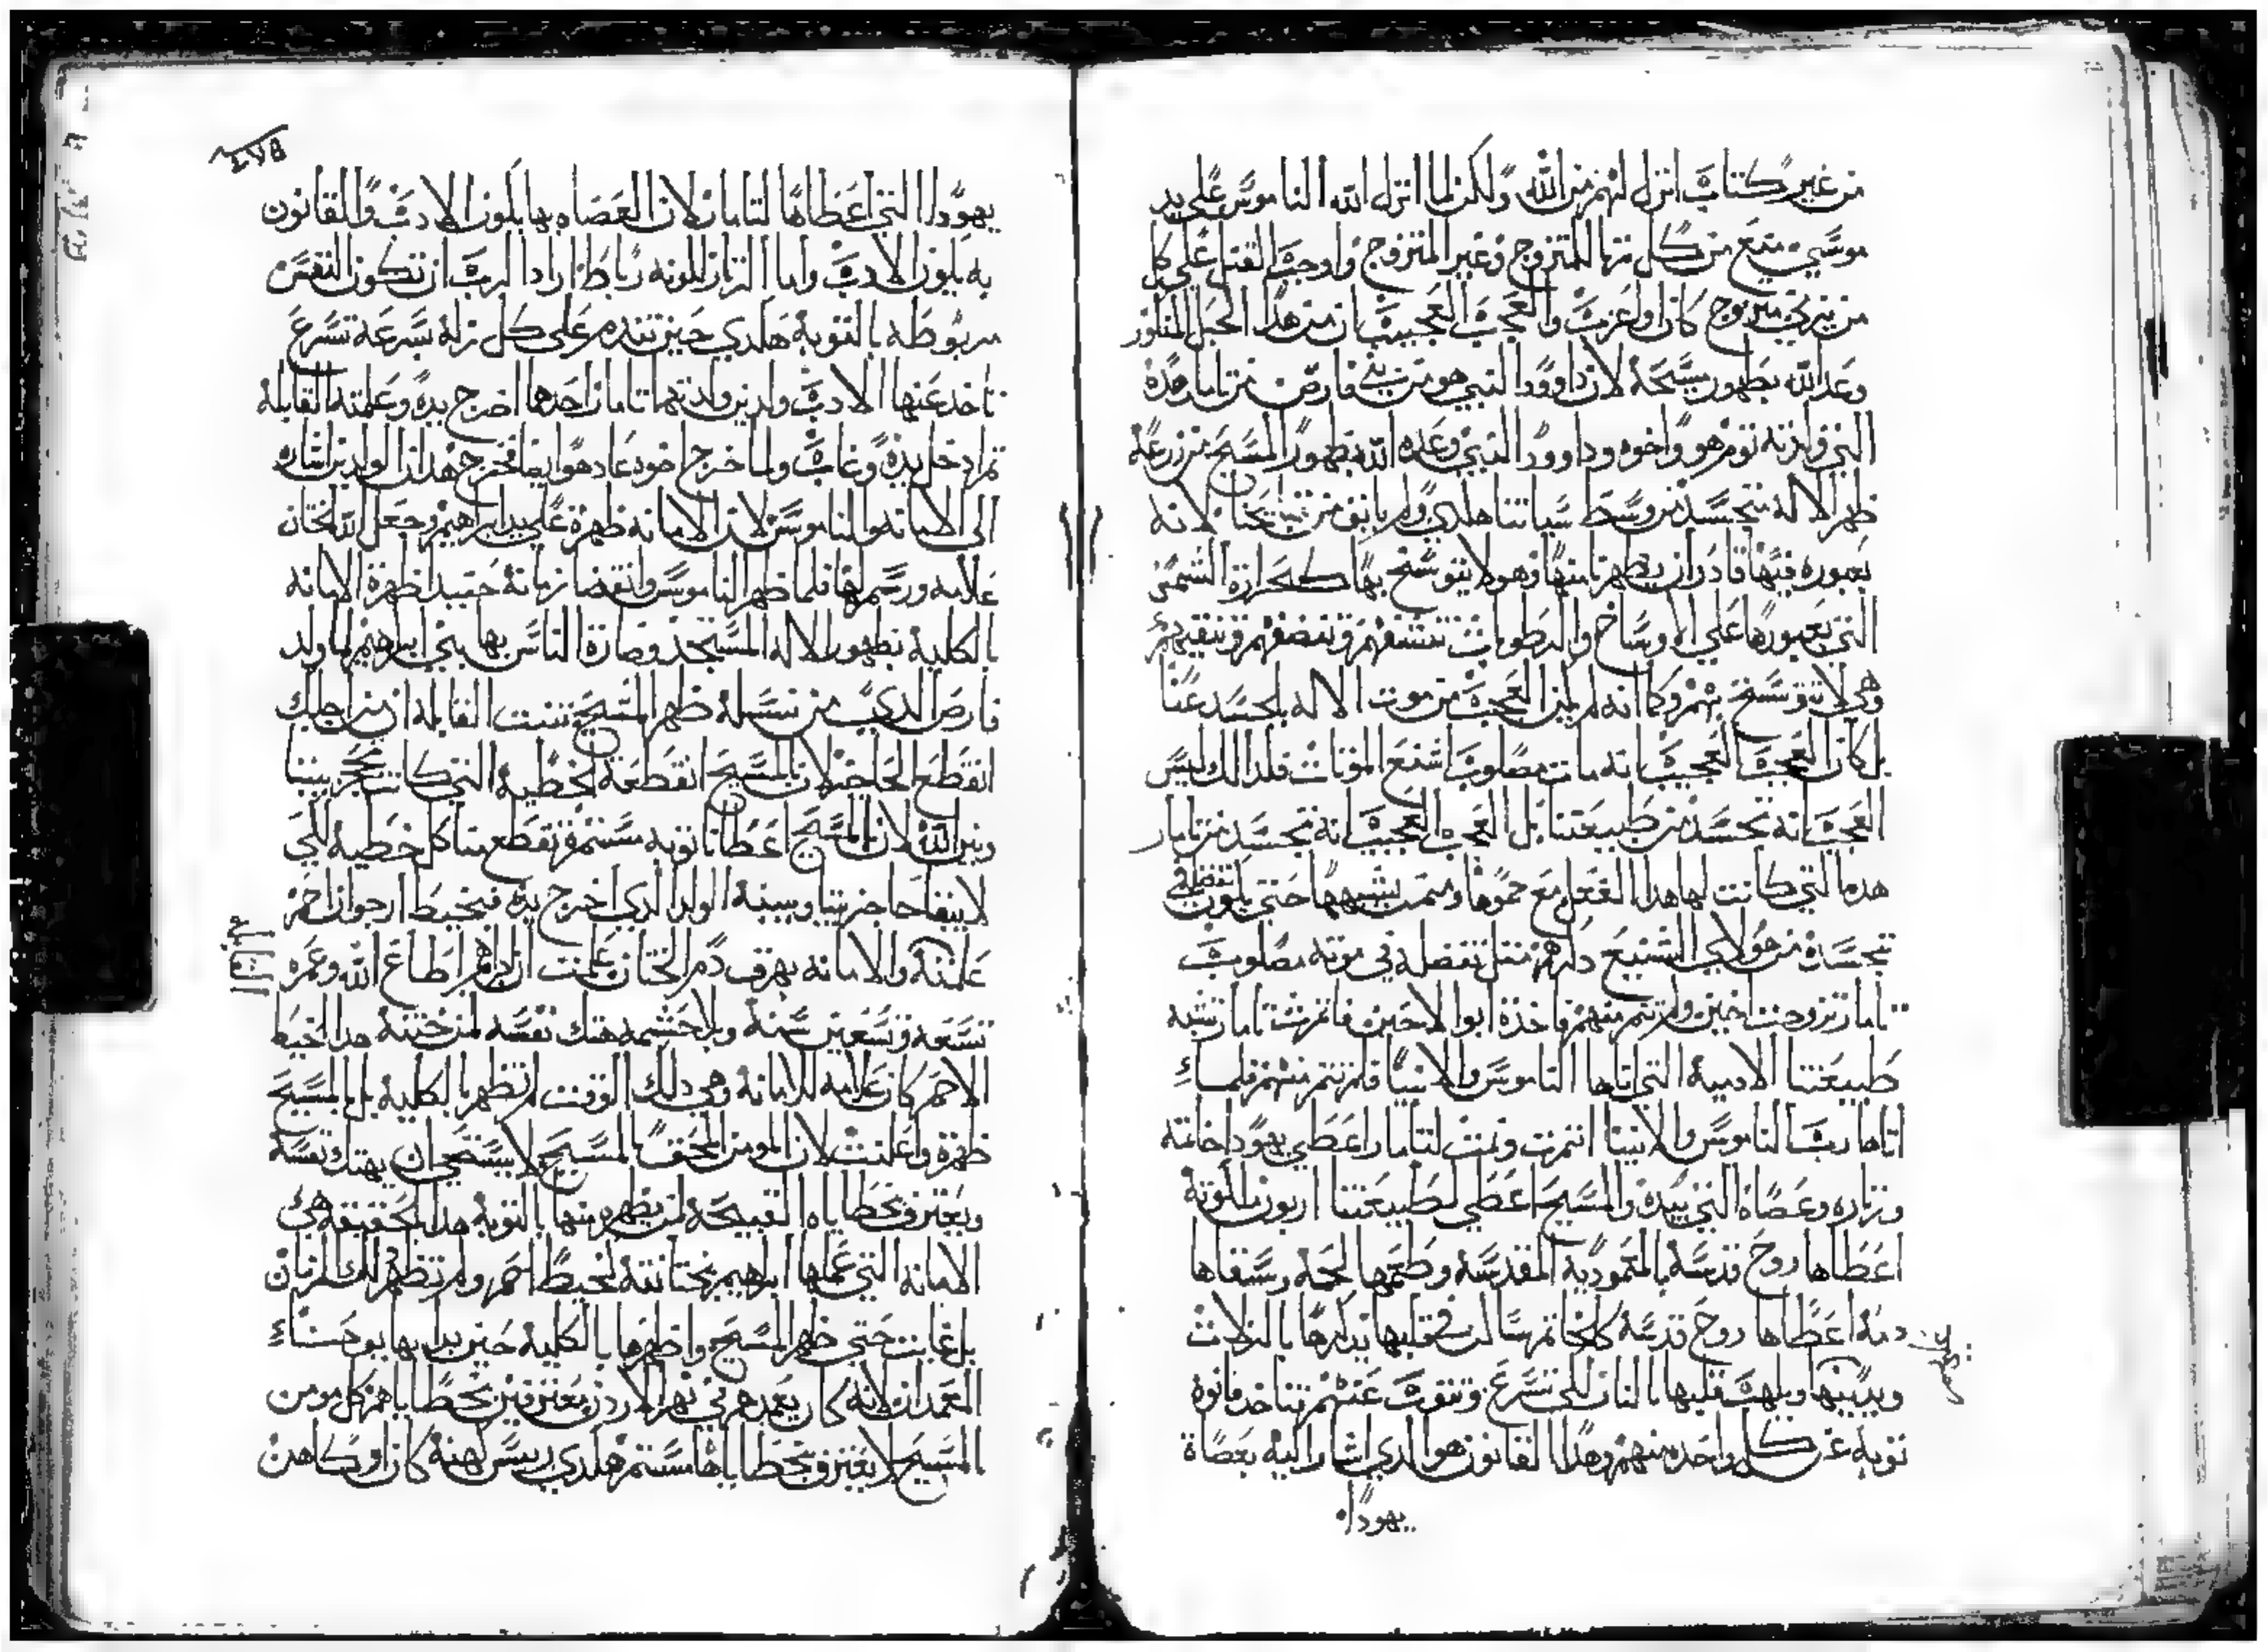 من غير كتاب انزل لهم من الله ولكن لما انزل الله الناموس على يد
موسي منع من كل زنا المتزوج وغير المتزوج واوجب القتل على كل
من يزني متزوج كان او عزب والعجب العجيب ان من هدا الحبل
وعد الله بظهور مسيحه لان داوود النبي هو من بني فارص من تامار هده
التي ولدته توم هو واخوه وداوود النبي وعده الله بظهور المسيح من زرعه
ظهر الاله متجسد من وسط سياتنا هلدي ولم يانف من لانه
بعبوره فيها قادر ان يطهرنا منها وهو لا يتوسخ بها كحرارة الشمس
التي بعبورها على الاوساخ والرطوبات تنشفهم وتنضفهم وتنقيهم
وهي لا تتوسخ بهم وكما انه لم يكن العجب من موت الاله بالجسد عنا
بل كان العجب العجيب انه مات مصلوب اشنع الموتات فلدالك ليس
العجب انه تجسد من طبيعتنا بل العجب العجيب انه تجسد من تامار
هده التي كانت لها هدا الفعل مع حموها ومن يشبهها حتي يكون تفضله في
تجسده من هولاي الشنيع دكرهم مثل تفضله في موته مصلوب
تامار تزوجت اخين ولم تتمر منهم فاخدة ابوا الاخين فاتمرت تامار تشبه
طبيعتنا الادمية التي اتاها الناموس والانبيا فلم تتمر منهم فلما
اتاها رب الناموس والانبيا اتمرت ونمت لتامار اعطي يهودا خاتمه
وزناره وعصاه التي بيده والمسيح اعطي لطبيعتنا اربون التوبة
اعطاها روح قدسه بالمعمودية المقدسه وطعمها لحمه وسقاها
دمه اعطاها روح قدسه كالخاتم ساكن في قلبها يدكرها بالزلات
ويدينها ويلهب قلبها بالنار لكي تسرع وتتوب عنهم تتاخد قانون
توبه عن كل واحده منهم وهدا القانون هو الدي اشار اليه بعصاة
يهودا
٢٧٥
يهودا التي اعطاها لتامار لان العصاه بها يكون الادب والقانون
به يكون الادب واما الزنار لكونه رباط اراد الرب ان تكون النفس
مربوطه بالتوبة هلدي حين تندم على كل زلة بسرعة تسرع
تاخد عنها الادب ولدين ولدتهما تامار احدها اخرج يده وعلمته القابلة
تم ادخل يده وغاب ولما خرج اخوه عاد هو ايضا خرج هدان الولدين اشاره
الى الامانه والناموس لان الامانه ظهرة على يد ابراهيم وجعل الله الختان
علامه ورسم لها فلما ظهر الناموس وانقضا زمانة حينيد اظهرة الامانه
بالكلية بظهور الاله المتجسد وصارة الناس بها بني ابراهيم لما ولد
فارص الدي من نسله ظهر المسيح تنبت القابلة ان من اجلك
انقطع الحاجز لان بالمسيح انقطعة الخطية التي كانت تحجز بيننا
وبين الله لان المسيح اعطانا توبه مستمرة تقطع منا كل خطية لكي
لا يبقا حاجز بيننا وبينه الولد الدي اخرج يده فبخيط ارجوان احمر
علمته والامانه بهرق دم الختان علمت ابراهيم اطاع الله وعمره
تسعة وتسعين سنة وبلا حشمه هتك نفسه لمن ختنه هدا الخيط
الاحمر كان علامه للامانه وفي دلك الوقت لم تظهر بالكلية بل بالمسيح
ظهرة واعلنت لان المومن المحقق بالمسيح لا يستحي ان يهتك نفسه
ويعترف بخطاياه القبيحة لمن يطهره منها بالتوبة هدا بالحقيقه هي
الامانه التي عملها ابراهيم بختانته الخيط احمر ولم تظهر دلك الزمان
بل غابت حتي ظهر المسيح واظهرها بالكلية حين بدا بها يوحنا
المعمدان لانه كان يعمدهم في نهر الاردن معترفين بخطاياهم كل مومن
بالمسيح لا يعترف بخطاياه مستمر هلدي رييس كهنة كان او كاهن